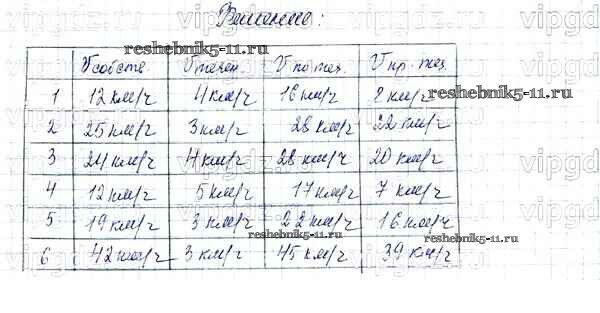 Решение:
Vсобств. Vтечен. Vпо теч. Vпр. теч.
1 12 км/ч 4 км/ч 16 км/ч 8 км/ч
2 25 км/ч 3 км/ч 28 км/ч 22 км/ч
3 24 км/ч 4 км/ч 28 км/ч 20 км/ч
4 12 км/ч 5 км/ч 17 км/ч 7 км/ч
5 19 км/ч 3 км/ч 22 км/ч 16 км/ч
6 42 км/ч 3 км/ч 45 км/ч 39 км/ч
reshebnik5-11.ru
reshebnik5-11.ru
reshebnik5-11.ru
reshebnik5-11.ru
vipgdz.ru